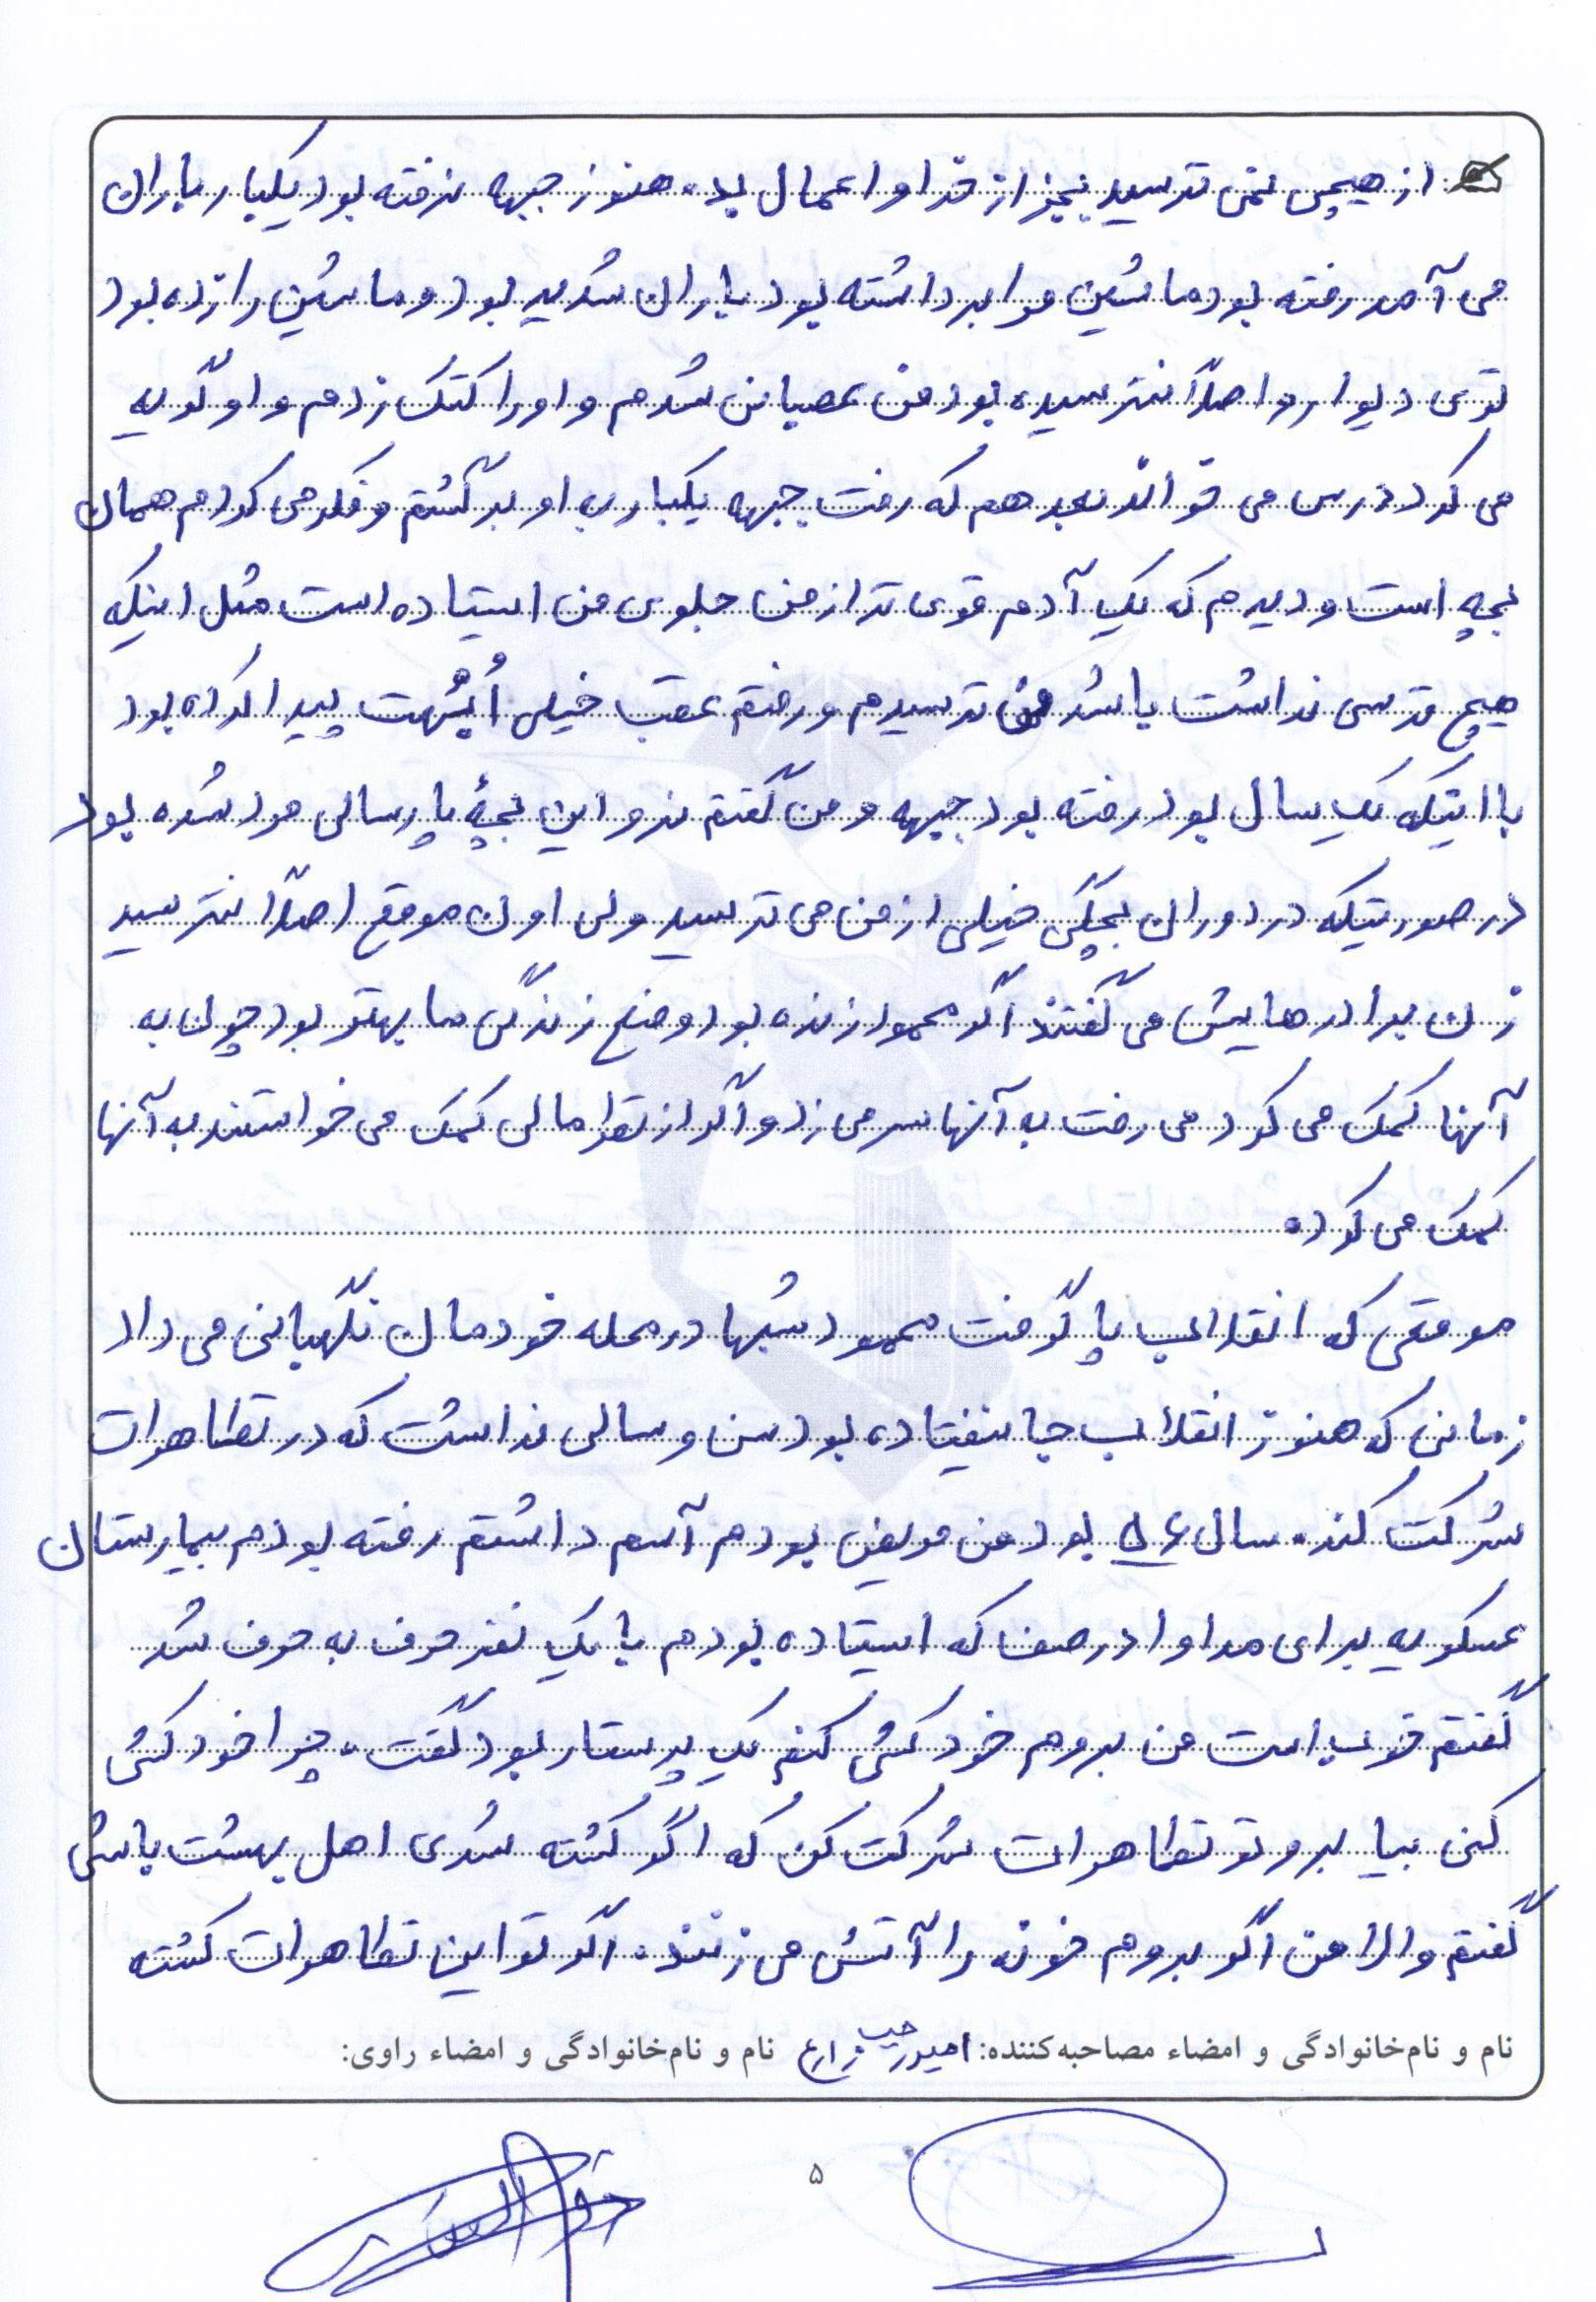 از هیچی نمی ترسید بجز از خدا و اعمال بد. هنوز جبهه نرفته بود یکبار باران
می آمد رفته بود ماشین مرا برداشته بود باران شدید بود و ماشین را زده بود
توی دیوار و اصلاً نترسیده بود من عصبانی شدم و او را کتک زدم و او گریه
می کرد درس می خواند بعد هم که رفت جبهه یکبار به او برگشتم و فکر می کردم همان
بچه است و دیدم که یک آدم قوی تر از من جلوی من ایستاده است مثل اینکه
هیچ ترسی نداشت باشد من ترسیدم و رفتم عقب خیلی اُبُهت پیدا کرده بود
با اینکه یک سال بود رفته بود جبهه و من گفتم نرو این بچهٔ پارسالی مرد شده بود
در صورتیکه در دوران بچگی خیلی از من می ترسید ولی اون موقع اصلاً نترسید
زن برادرهایش می گفتند اگر محمود زنده بود وضع زندگی ما بهتر بود چون به
آنها کمک می کرد می رفت به آنها سر می زد و اگر از نظر مالی کمک می خواستند به آنها
کمک می کرد.
موقعی که انقلاب پا گرفت محمود شبها در محله خودمان نگهبانی می داد
زمانی که هنوز انقلاب جا نیفتاده بود سن و سالی نداشت که در تظاهرات
شرکت کند. سال ۵۶ بود من مریض بودم آسم داشتم رفته بودم بیمارستان
عسکریه برای مداوا در صف که ایستاده بودم با یک نفر حرف به حرف شد
گفتم خوب است من بروم خودکشی کنم یک پرستار بود گفت. چرا خودکشی
کنی بیا برو تو تظاهرات شرکت کن که اگر کشته شدی اهل بهشت باشی
گفتم والا من اگر بروم خونه را آتش می زنند. اگر تو این تظاهرات کشته
نام و نام‌خانوادگی و امضاء مصاحبه‌کننده: امیر رجب زارع نام و نام‌خانوادگی و امضاء راوی:
۵